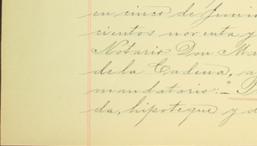 en cinco de Junio
cientos noventa y
Notario Don Ma
de la Cadena, a
mandatario:-"
da, hipoteque y d